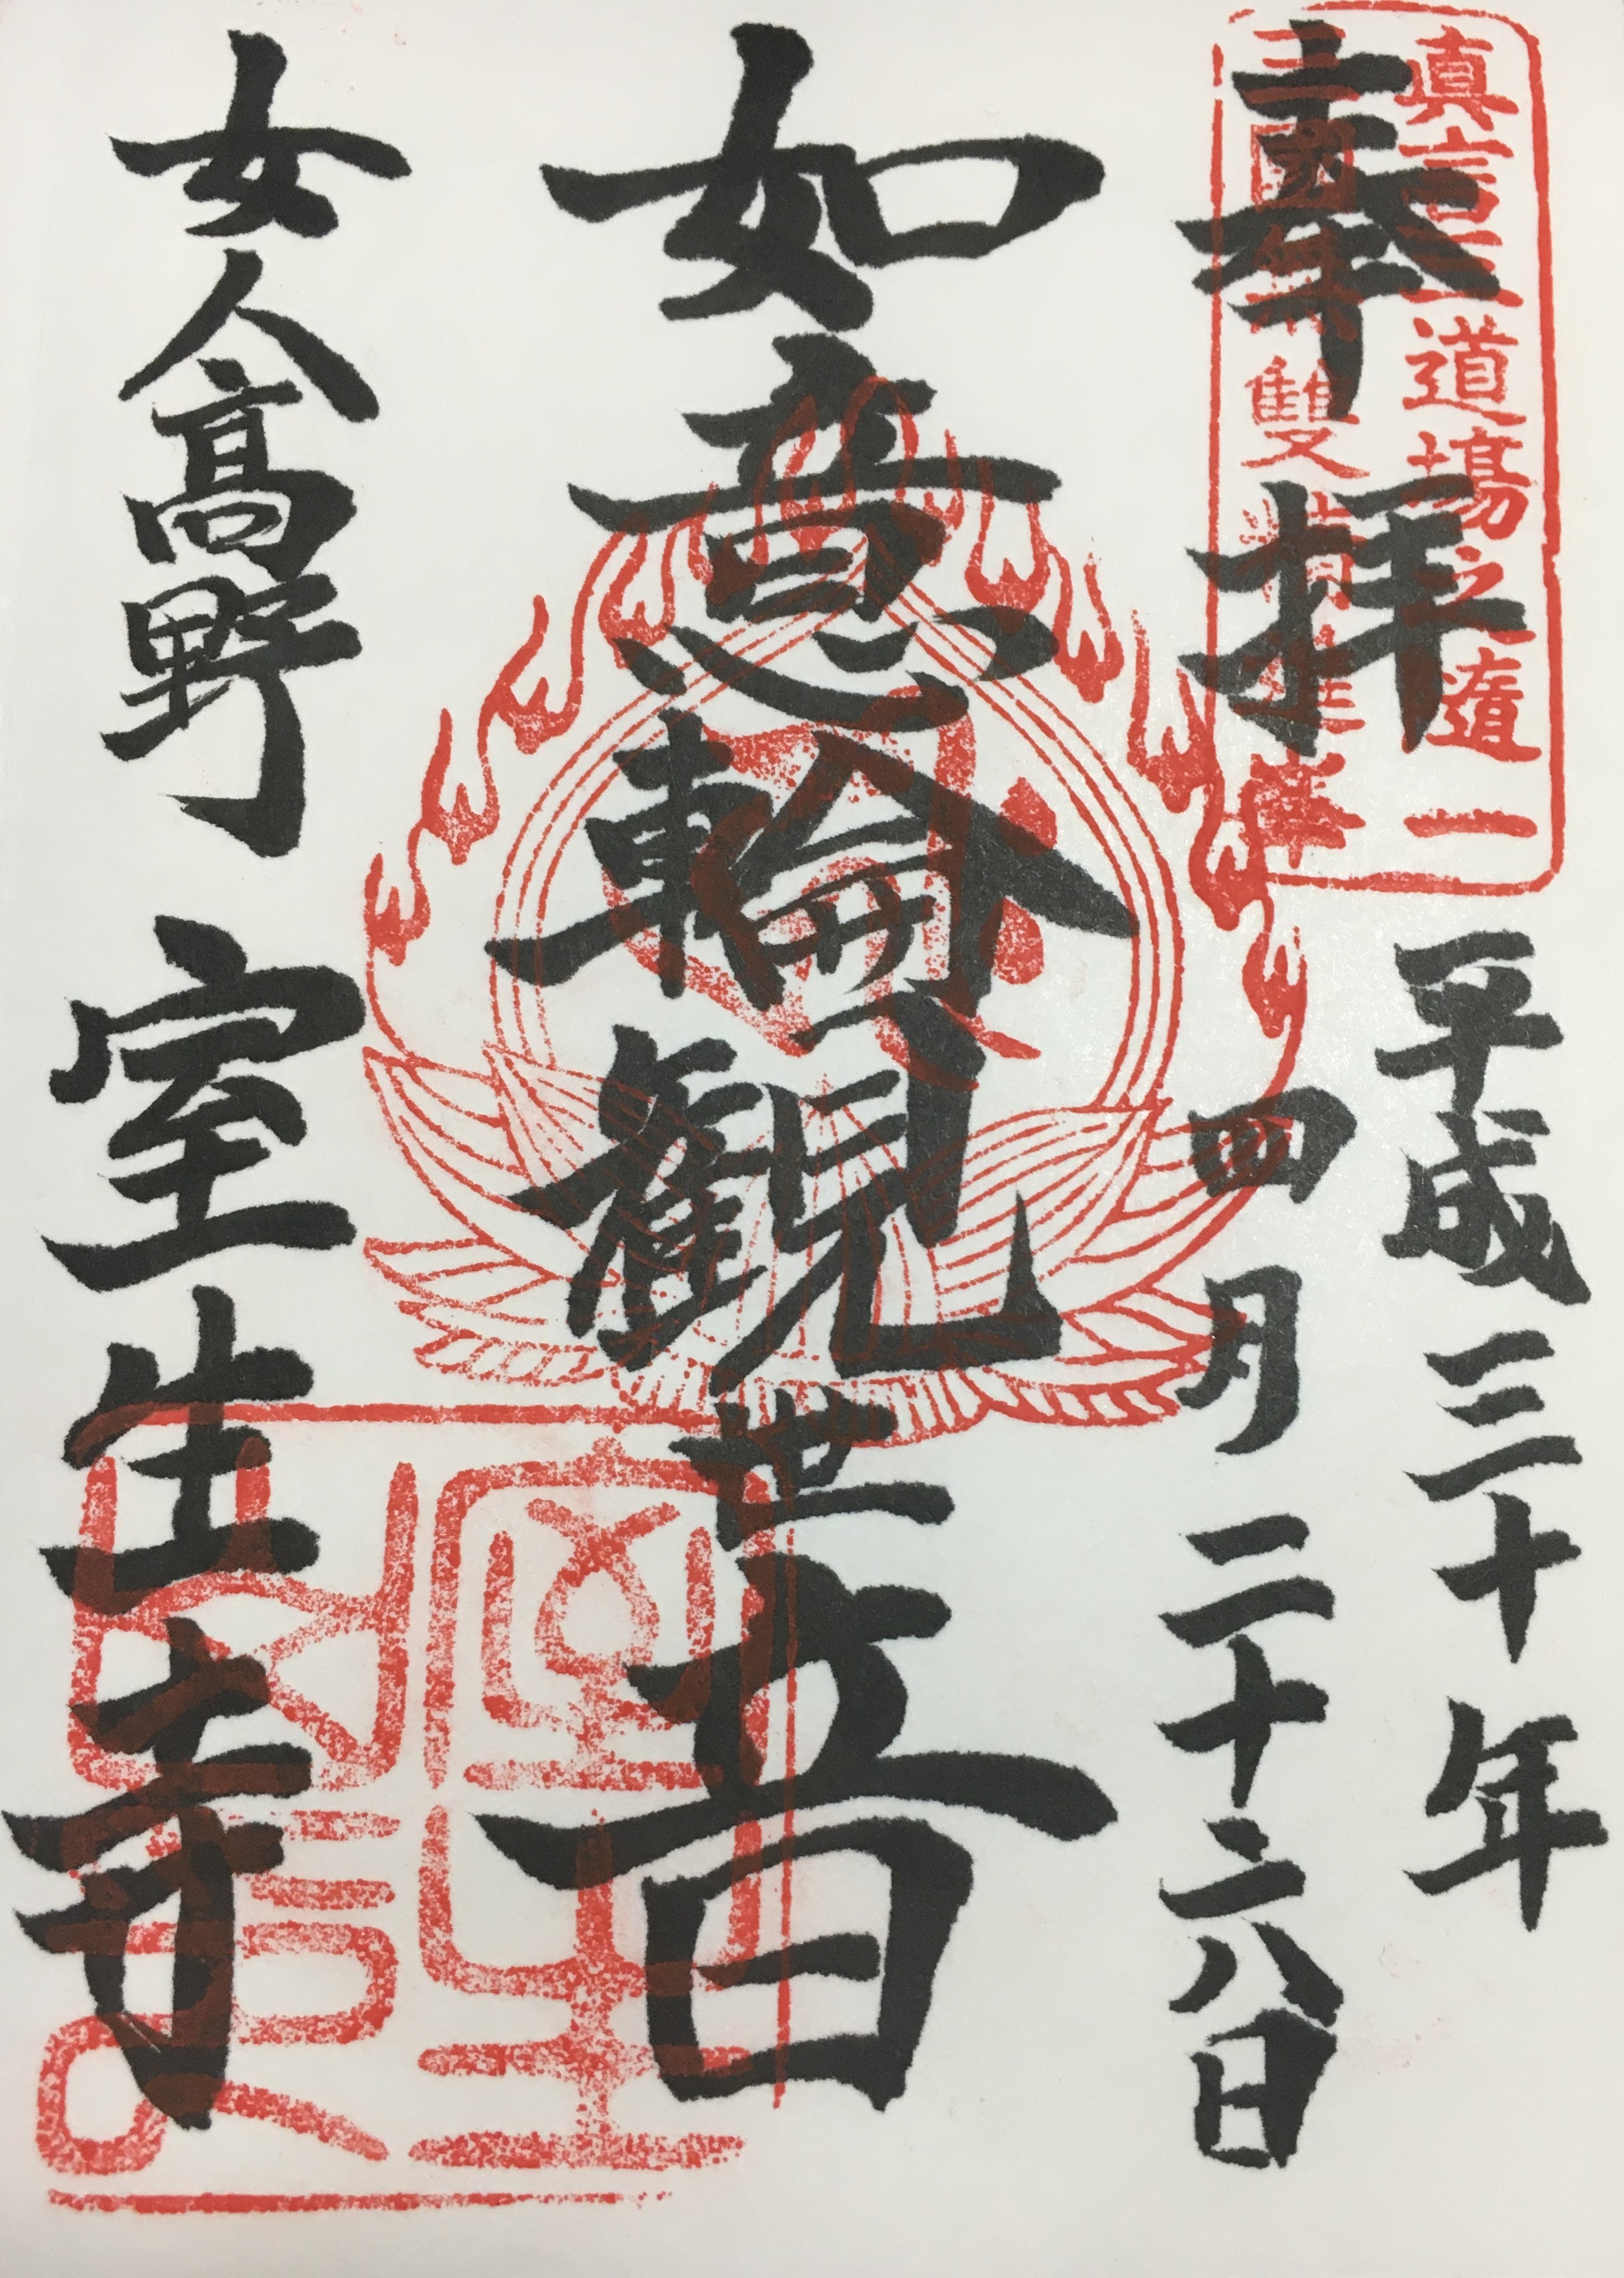 真言三道場之隨一
三國無雙精進峯
奉拝
平成三十年
四月二十六日
如意輪観世音
女人高野
室生寺